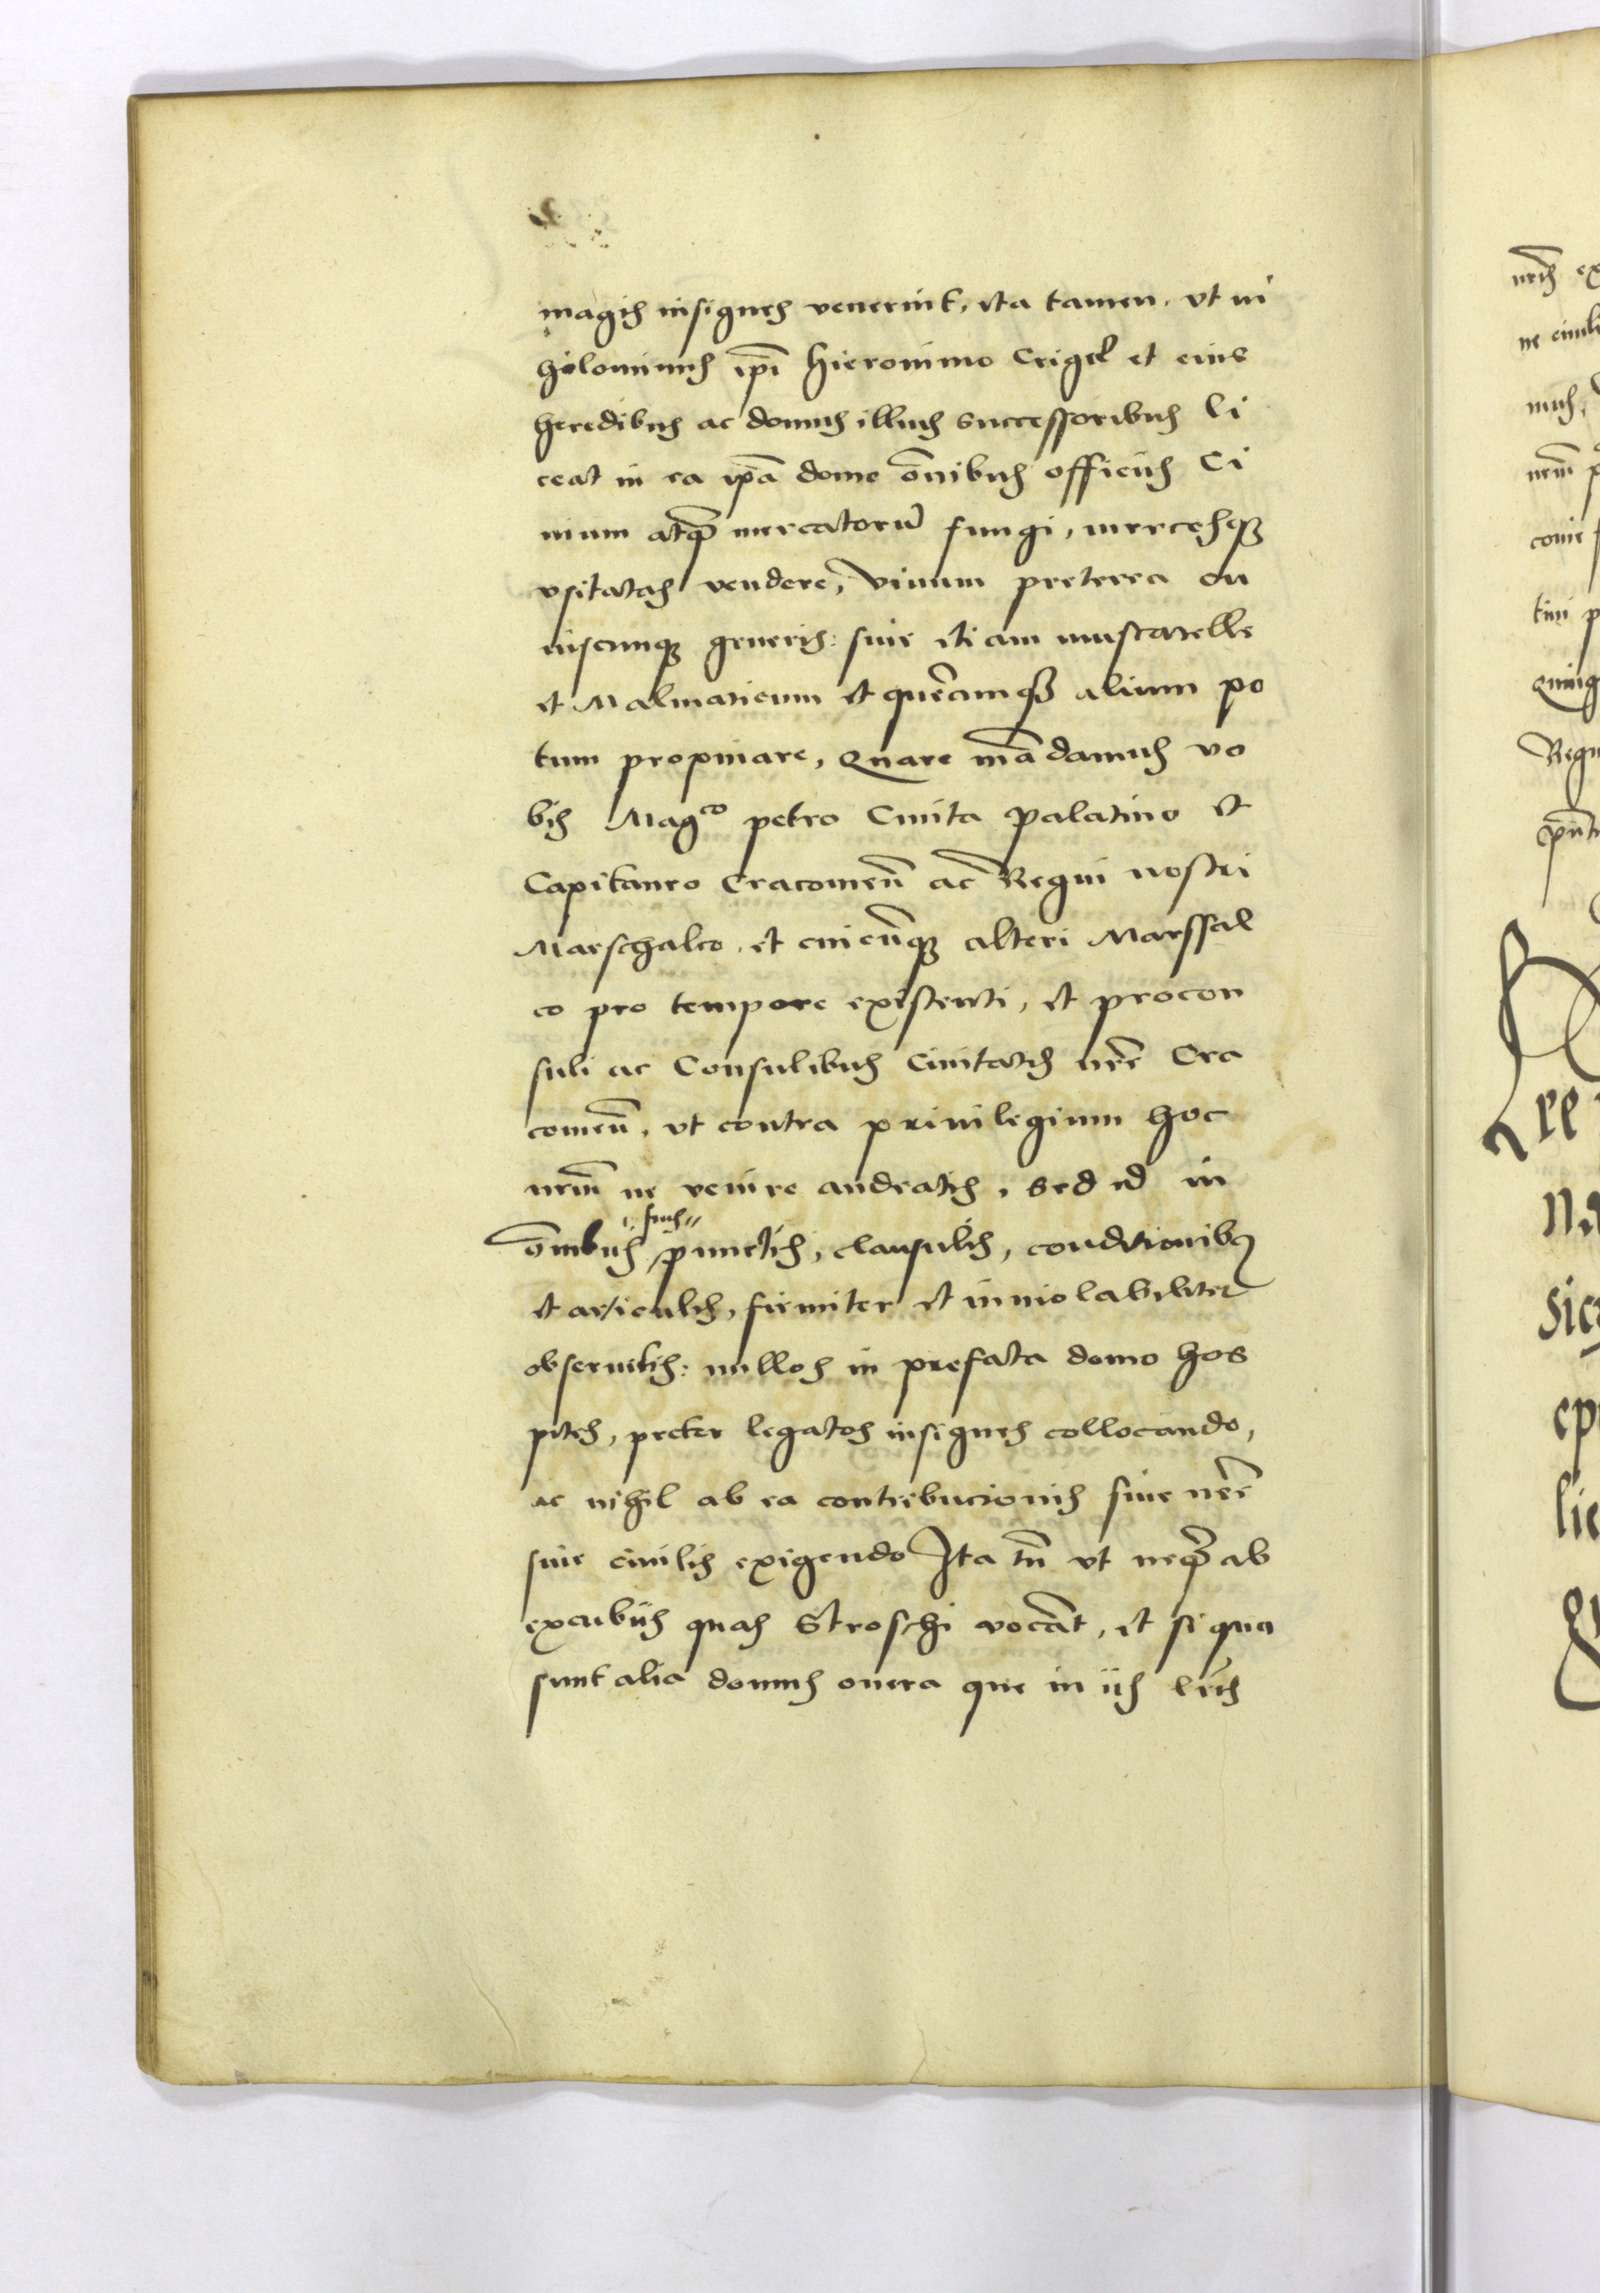 magis insignes venerint, ita tamen, vt ni
hilominus ip̄i Hieronimo Crigel et eius
heredibus ac domus illius successoribus li
ceat in ea ip̄a domo ōnibus officiis Ci
nium atq̄ mercatorū fungi, mercesq́ꝫ
vsitatas vendere, vinum preterea cu
iuscunqꝫ generis: siue etiam muscatelle
et Malmaticum et quēcumqꝫ alium po
tum propinare, Quare mādamus vo
bis Mag^co petro Cmita Palatino et
Capitaneo Cracouieñ ac Regni nostri
Marschalco, et cuicūnqꝫ alteri Marssal
co pro tempore existenti, et procon
suli ac Consulibus Ciuitatis nr̄e Cra
couieñ, vt contra priuilegium hoc
nr̄m ne venire audeatis, sed id in
ōmibus suis punctis, clausulis, conditionibꝫ
et articulis, firmiter et inuiolabiliter
obseruetis: nullos in prefata domo hos
pites, preter legatos insignes collocando,
ac nihil ab ea contribucionis siue nr̄e
siue ciuilis exigendo Ita tn̄ vt neq̄ ab
excubiis quas Stroschi vocāt, et si qua
sunt alia domus onera que in iis lr̄is
nr̄is ex
ne ciuili
mus,
nr̄m p
couie
tini p
Quing
Regn
p̄nti
re
na
sic
ep
lic